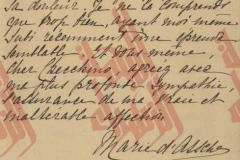 sa douleur. Je ne la comprends
que trop bien, ayant moi même
subi récemment une épreuve
semblable. Et vous même,
cher Checchino, agréez avec
ma plus profonde sympathie,
l'assurance de ma vraie et
inaltérable affection
Marie d'